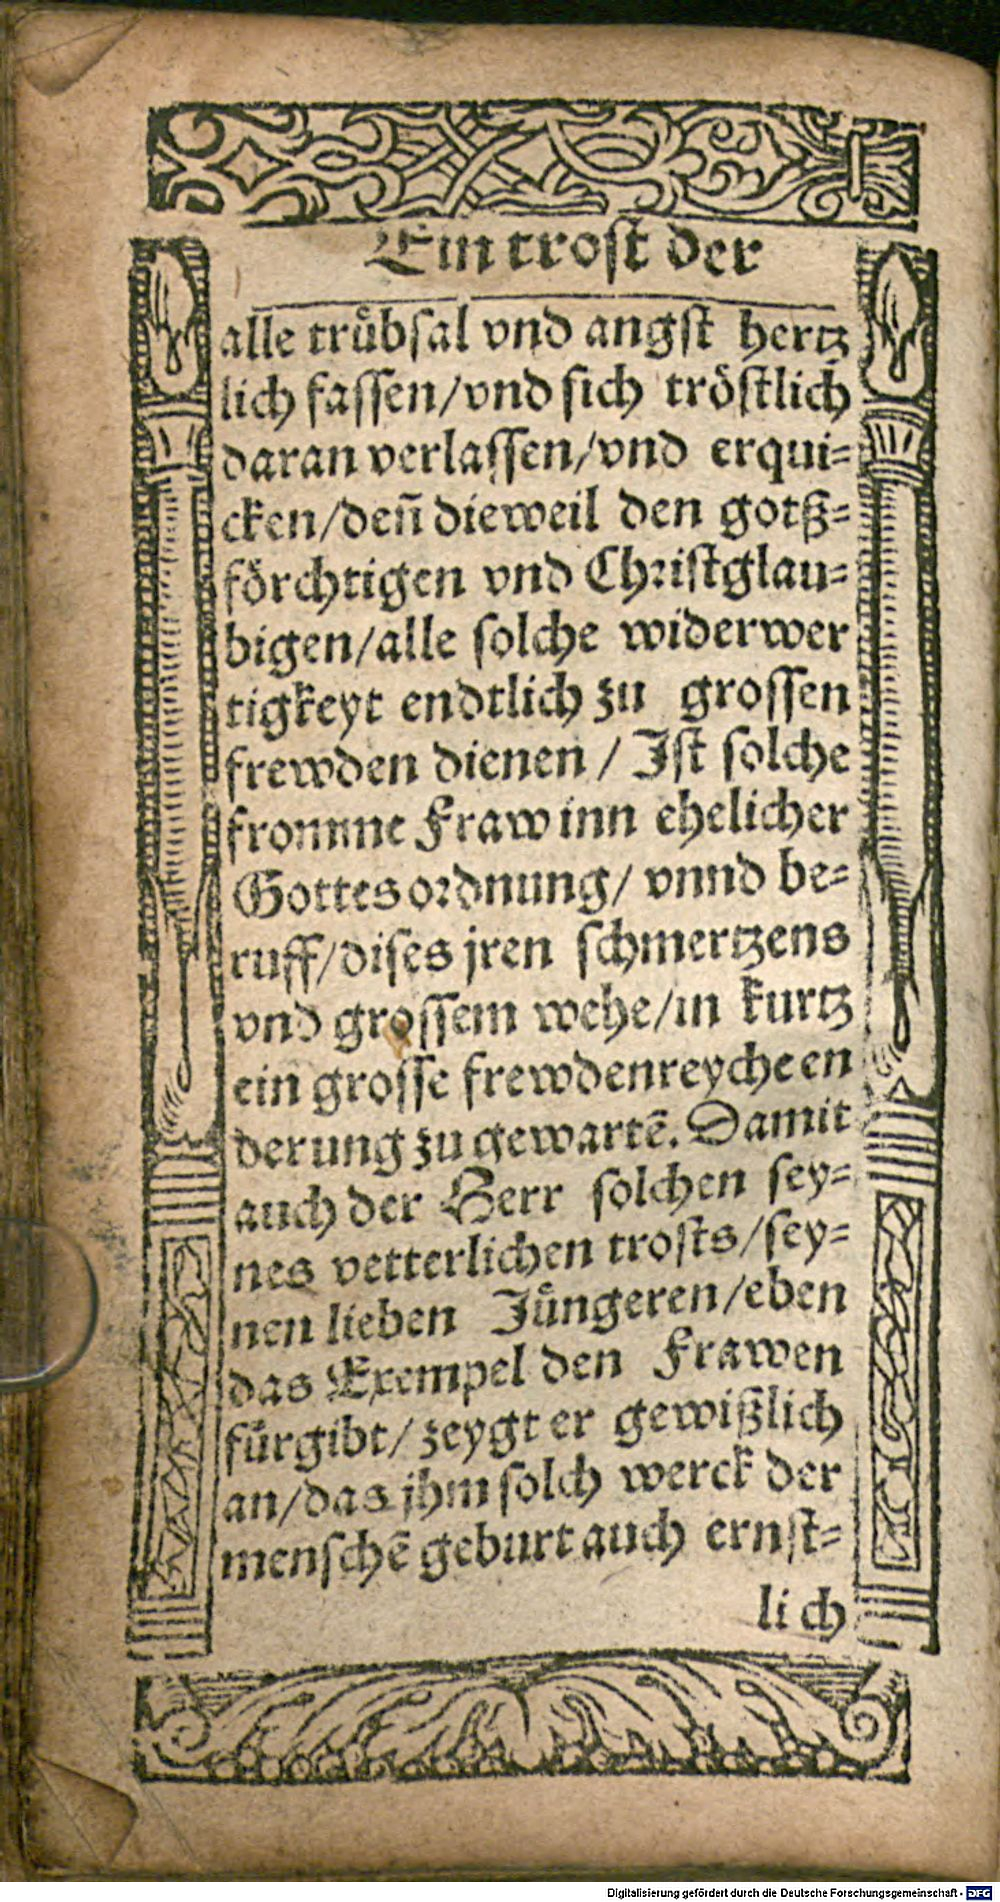 Ein trost der
alle trübsal vnd angst hertz
lich fassen/vnd sich tröstlich
daran verlassen/vnd erqui-
cken/deñ dieweil den gotß-
förchtigen vnd Christglau-
bigen/alle solche widerwer
tigkeyt endtlich zu grossen
frewden dienen / Ist solche
fromme Fraw inn ehelicher
Gottes ordnung/ vnnd be-
ruff/dises jren schmertzens
vnd grossem wehe/in kurtz
ein grosse frewdenreyche en
derung zu gewartē. Damit
auch der Herr solchen sey-
nes vetterlichen trosts/sey-
nen lieben Jüngeren/eben
das Exempel den Frawen
fürgibt/zeygt er gewißlich
an/das jhm solch werck der
menschē geburt auch ernst-
lich
Digitalisierung gefördert durch die Deutsche Forschungsgemeinschaft - DFG